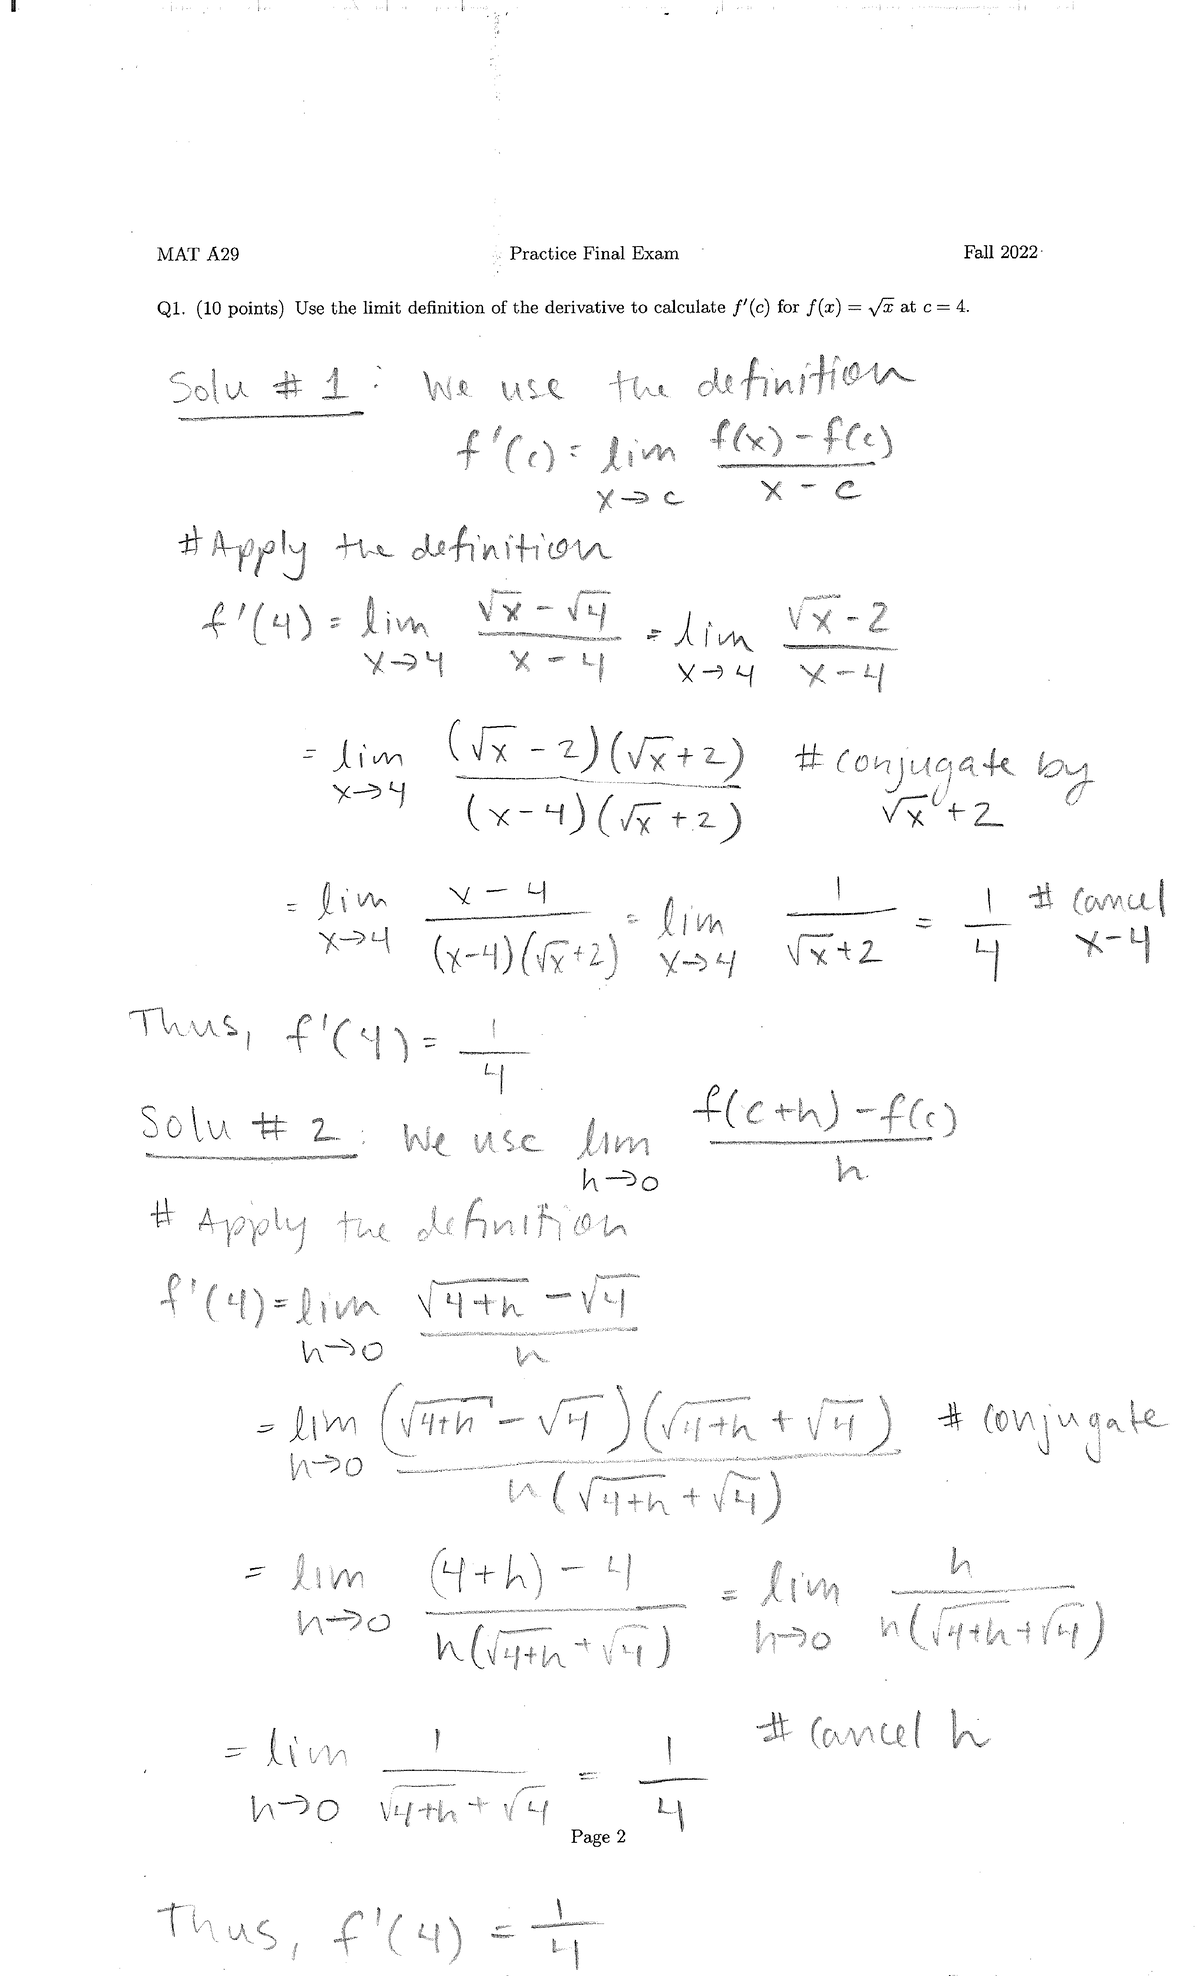 MAT A29 Practice Final Exam Fall 2022
Q1. (10 points) Use the limit definition of the derivative to calculate f'(c) for f(x) = √x at c = 4.
Solu # 1 : We use the definition
f'(c) = lim x→c (f(x) - f(c))/(x - c)
# Apply the definition
f'(4) = lim x→4 (√x - √4)/(x - 4) = lim x→4 (√x - 2)/(x - 4)
= lim x→4 ((√x - 2)(√x + 2))/((x - 4)(√x + 2)) # conjugate by √x + 2
= lim x→4 (x - 4)/((x-4)(√x+2)) = lim x→4 1/(√x+2) = 1/4 # cancel x-4
Thus, f'(4) = 1/4
Solu # 2 : We use lim h→0 (f(c+h) - f(c))/h
# Apply the definition
f'(4) = lim h→0 (√(4+h) - √4)/h
= lim h→0 ((√(4+h) - √4)(√(4+h) + √4))/(h(√(4+h) + √4)) # conjugate
= lim h→0 ((4+h) - 4)/(h(√(4+h) + √4)) = lim h→0 h/(h(√(4+h) + √4))
= lim h→0 1/(√(4+h) + √4) = 1/4 # cancel h
Page 2
Thus, f'(4) = 1/4